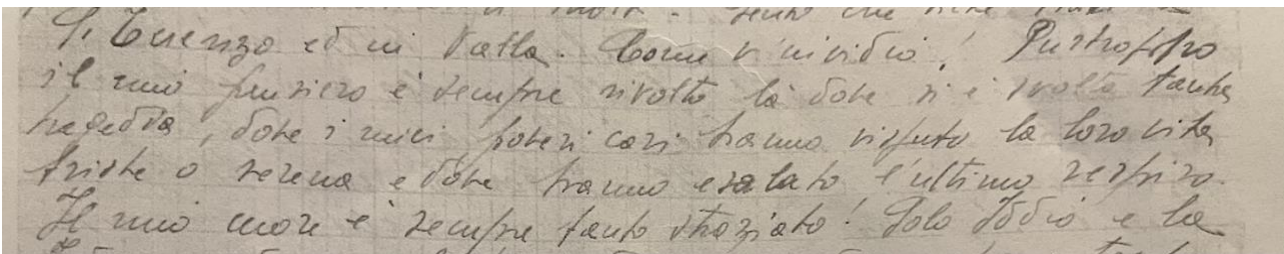 Sento che siete stati a
S. Terenzo ed in Vatta. Come v'invidio! Purtroppo
il mio pensiero è sempre rivolto là dove si è svolta tanta
tragedia, dove i miei poveri cari hanno vissuto la loro vita
triste o serena e dove hanno esalato l'ultimo respiro.
Il mio cuore è sempre tanto straziato! Solo Iddio e la